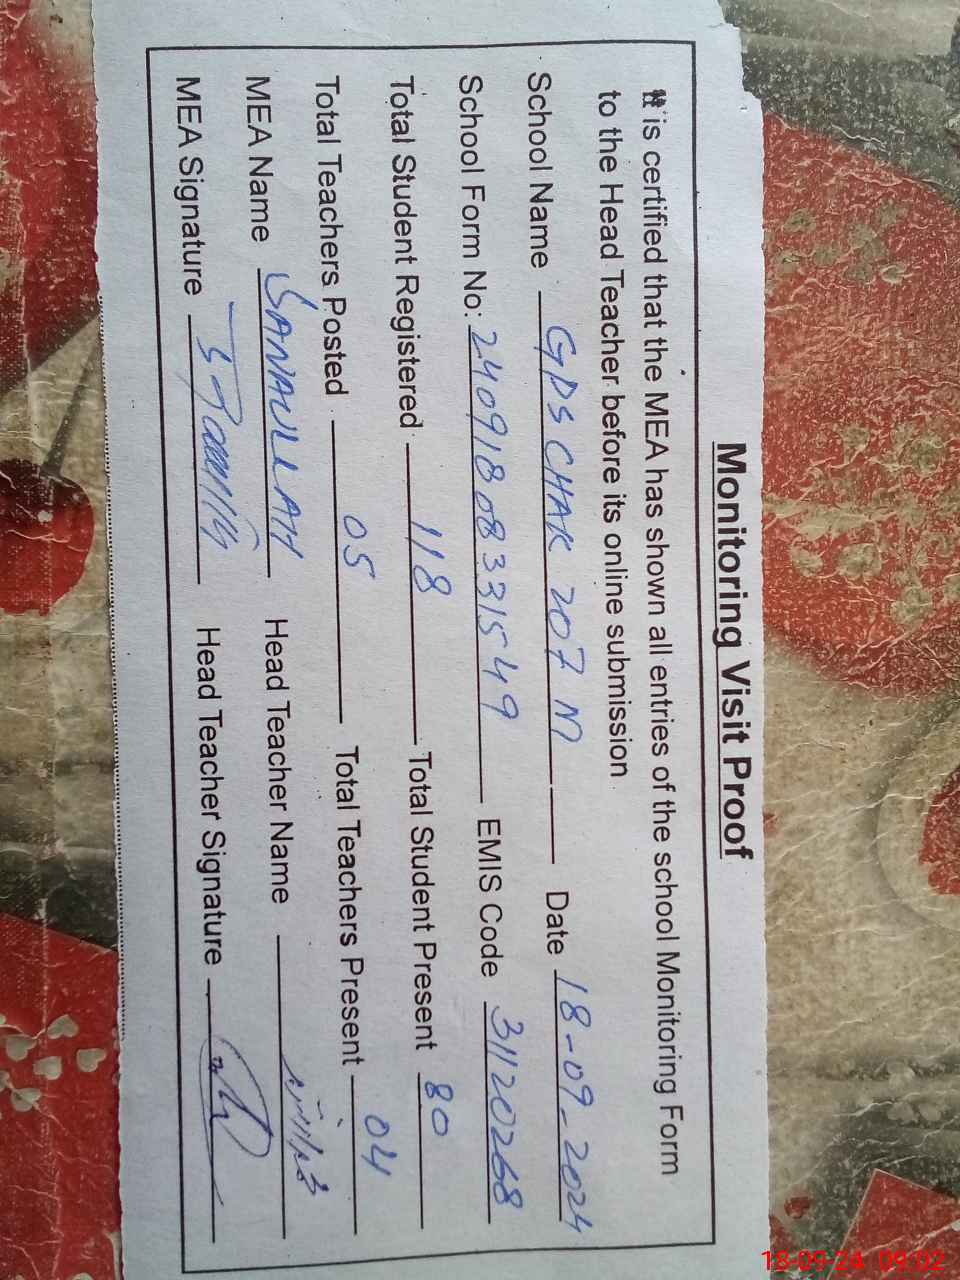 Monitoring Visit Proof
It is certified that the MEA has shown all entries of the school Monitoring Form
to the Head Teacher before its online submission
School Name GPS CHAK 207 M Date 18-09-2024
School Form No: 24091808331549 EMIS Code 31120268
Total Student Registered 118 Total Student Present 80
Total Teachers Posted 05 Total Teachers Present 04
MEA Name SANAULLAH Head Teacher Name
MEA Signature Head Teacher Signature
18-09-24 09:02